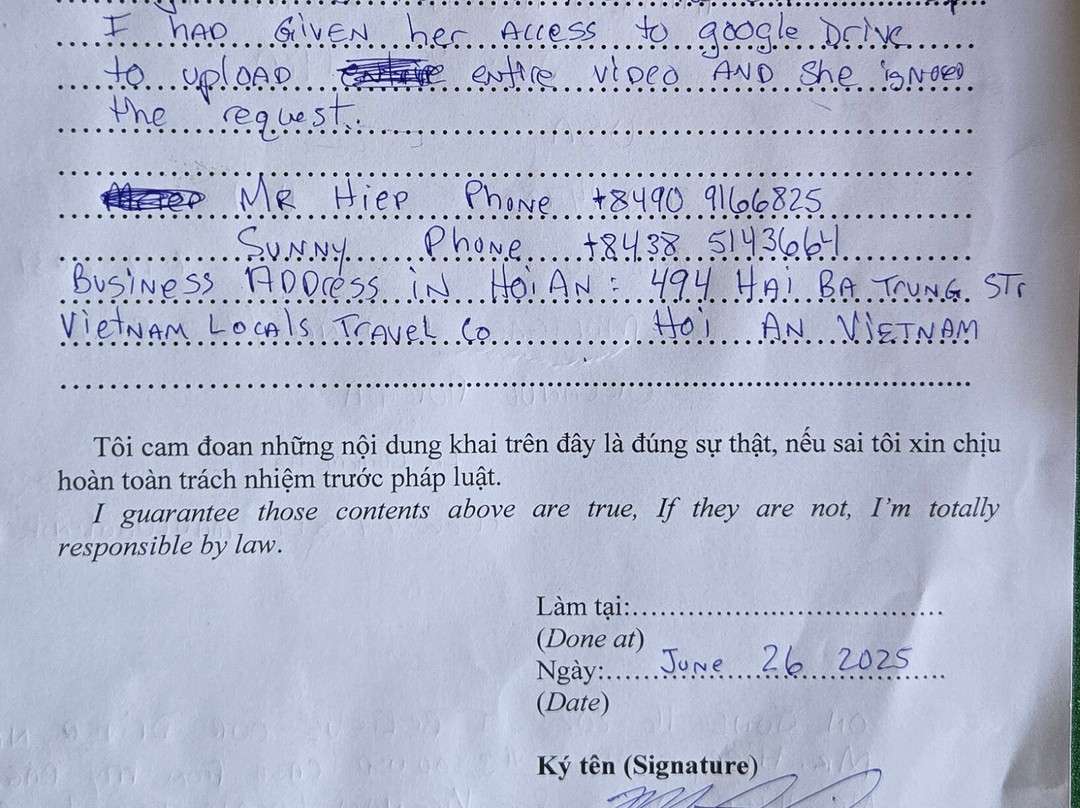 I HAD GIVEN her ACCESS to google Drive
to uplOAD entire VIDEO AND She igNored
the request.
MR Hiep Phone +8490 9166825
SUNNY Phone +8438 5143664
Business ADDress iN HOi AN : 494 HAi BA TRUNG. STr
VietNAM LocAls TRAVeL Co HOi AN ViETNAM
Tôi cam đoan những nội dung khai trên đây là đúng sự thật, nếu sai tôi xin chịu
hoàn toàn trách nhiệm trước pháp luật.
I guarantee those contents above are true, If they are not, I'm totally
responsible by law.
Làm tại:
(Done at)
Ngày: June 26 2025
(Date)
Ký tên (Signature)